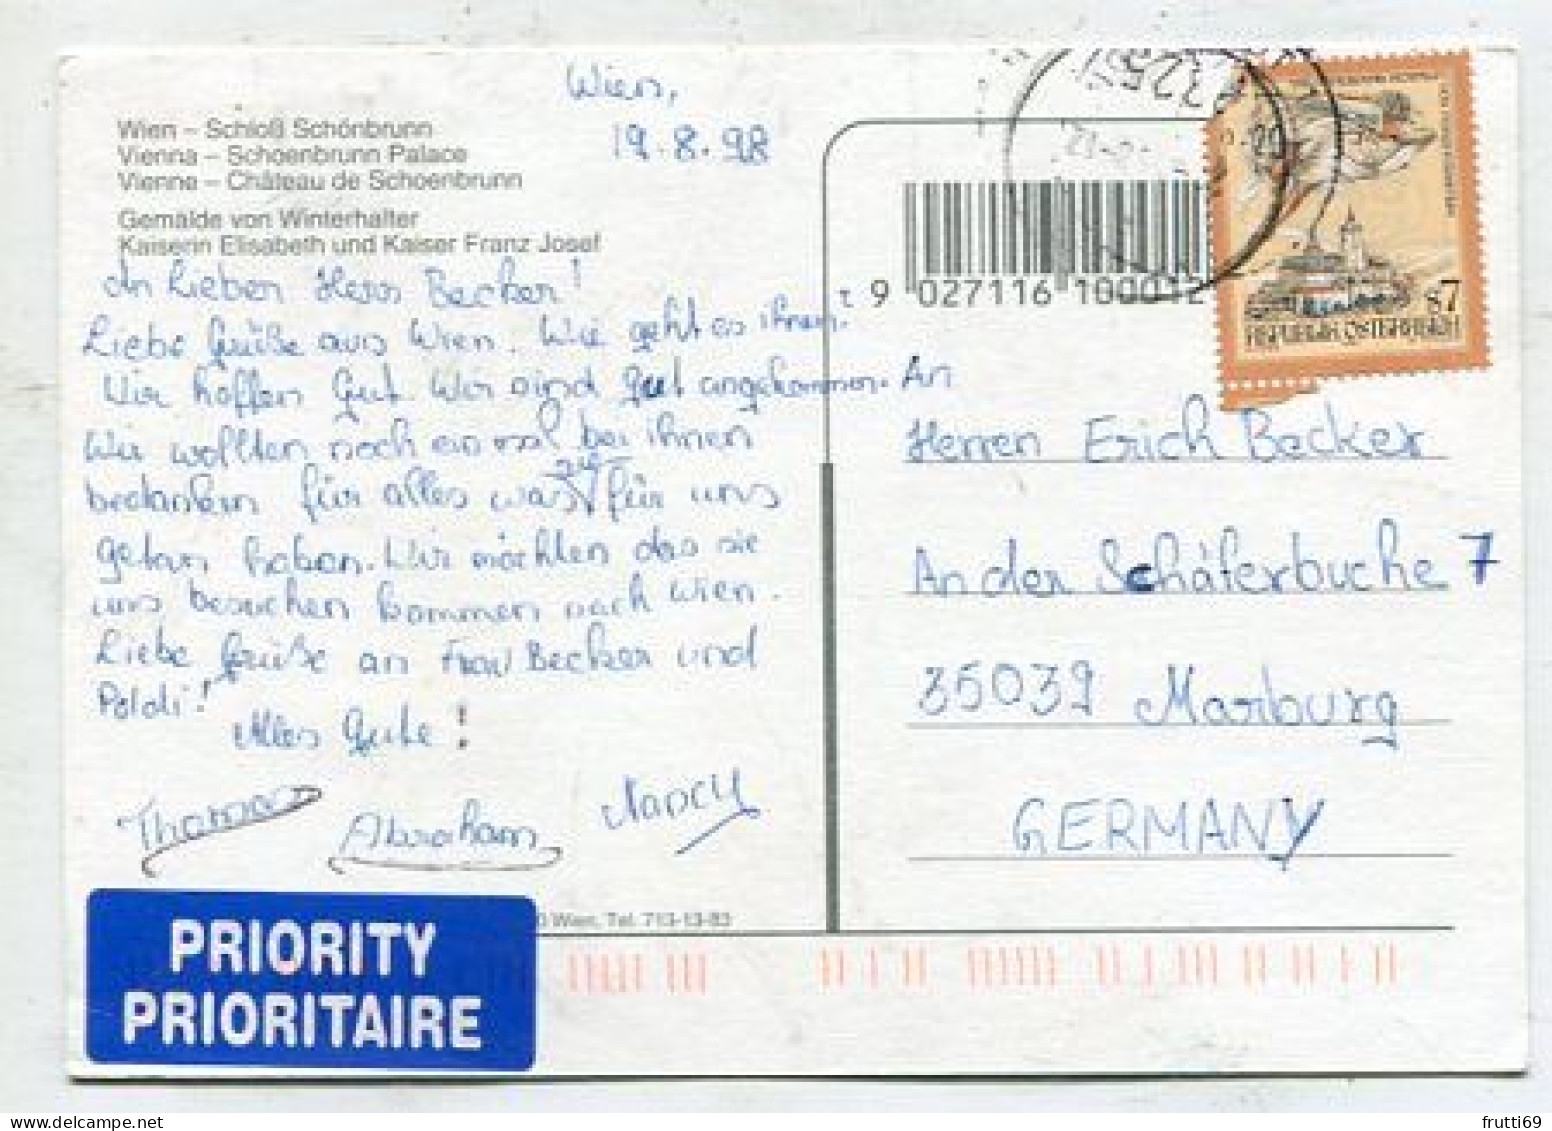 Wien,
19.8.98
Wien – Schloß Schönbrunn
Vienna – Schoenbrunn Palace
Vienne – Château de Schoenbrunn
Gemälde von Winterhalter
Kaiserin Elisabeth und Kaiser Franz Josef
An Lieben Herr Becker!
Liebe Grüße aus Wien. Wie geht es ihnen?
Wir hoffen Gut. Wir sind gut angekommen.
Wir wollten noch ein mal bei ihnen
bedanken für alles was sie für uns
getan haben. Wir möchten das sie
uns besuchen kommen nach Wien.
Liebe Grüße an Frau Becker und
Poldi!
Alles Gute!
Thomas
Abraham
Nancy
PRIORITY
PRIORITAIRE
0 Wien, Tel. 713-13-83
9 027116 100012
S7
REPUBLIK ÖSTERREICH
An
Herren Erich Becker
An der Schäferbuche 7
35039 Marburg
GERMANY
frutti69